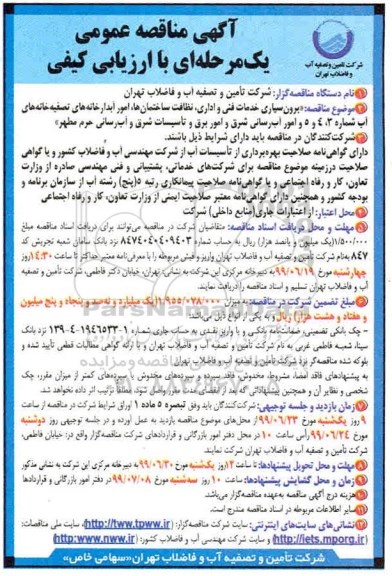 آگهی مناقصه عمومی
یک‌مرحله‌ای با ارزیابی کیفی
شرکت تأمین و تصفیه آب
و فاضلاب تهران
نام دستگاه مناقصه‌گزار: شرکت تأمین و تصفیه آب و فاضلاب تهران
موضوع مناقصه: «برون‌سپاری خدمات فنی و اداری، نظافت ساختمان‌ها، امور آبدارخانه‌های تصفیه‌خانه‌های
آب شماره ۳، ۴ و ۵ و امور آب‌رسانی شرق و امور برق و تأسیسات شرق و آب‌رسانی حرم مطهر»
شرکت‌کنندگان در مناقصه باید دارای شرایط ذیل باشند.
دارای گواهی‌نامه صلاحیت بهره‌برداری از تأسیسات آب از شرکت مهندسی آب و فاضلاب کشور و یا گواهی
صلاحیت درزمینه موضوع مناقصه برای شرکت‌های خدماتی، پشتیبانی و فنی مهندسی صادره از وزارت
تعاون، کار و رفاه اجتماعی و یا گواهی‌نامه صلاحیت پیمانکاری رتبه ۵ (پنج) رشته آب از سازمان برنامه و
بودجه کشور و همچنین دارای گواهی‌نامه معتبر صلاحیت ایمنی از وزارت تعاون، کار و رفاه اجتماعی
محل اعتبار: از اعتبارات جاری (منابع داخلی) شرکت
مهلت و محل دریافت اسناد مناقصه: متقاضیان شرکت در مناقصه می‌توانند برای دریافت اسناد مناقصه مبلغ
۱/۵۰۰/۰۰۰ (یک میلیون و پانصد هزار) ریال به حساب شماره ۸۴۷۴۰۴۰۴۰۹۴۰۳ نزد بانک سامان شعبه تجریش کد
۸۴۷ به‌نام شرکت تأمین و تصفیه آب و فاضلاب تهران واریز و فیش مربوطه را با معرفی‌نامه معتبر حداکثر تا ساعت ۱۴:۳۰ روز
چهارشنبه مورخ ۹۹/۰۶/۱۹ به دبیرخانه مرکزی این شرکت به نشانی: تهران، خیابان دکتر فاطمی، شرکت تأمین و تصفیه
آب و فاضلاب تهران تسلیم و اسناد مناقصه را دریافت نمایند.
مبلغ تضمین شرکت در مناقصه: به میزان ۱/۹۵۵/۰۷۸/۰۰۰ (یک میلیارد و نه‌صد و پنجاه و پنج میلیون
و هفتاد و هشت هزار) ریال و به یکی از انواع ذیل می‌باشد:
- چک بانکی تضمینی، ضمانت‌نامه بانکی و یا واریز نقدی به حساب جاری شماره نزد بانک
سینا، شعبه فاطمی غربی به نام شرکت تأمین و تصفیه آب و فاضلاب تهران و یا ارائه گواهی مطالبات قطعی تأیید شده و
بلوکه شده مناقصه‌گر نزد شرکت تأمین و تصفیه آب و فاضلاب تهران
به پیشنهادهای فاقد امضاء، مشروط، مخدوش، فاقد سپرده و سپرده‌های مخدوش یا سپرده‌های کمتر از میزان مقرر، چک
شخصی و نظایر آن و همچنین پیشنهاداتی که بعد از انقضای مدت مقرر واصل شود مطلقاً ترتیب اثر داده نخواهد شد.
زمان بازدید و جلسه توجیهی: شرکت‌کنندگان باید وفق تبصره ۵ ماده ۱ اوراق شرایط شرکت در مناقصه از ساعت
۹ روز یکشنبه مورخ ۹۹/۰۶/۲۳ از محل‌های موضوع مناقصه بازدید به عمل آورده و در جلسه توجیهی روز دوشنبه
مورخ ۹۹/۰۶/۲۴ رأس ساعت ۱۰ در محل دفتر امور بازرگانی و قراردادهای شرکت مناقصه‌گزار واقع در: خیابان فاطمی،
شرکت تأمین و تصفیه آب و فاضلاب تهران شرکت نمایند.
مهلت و محل تحویل پیشنهادها: تا ساعت ۱۲ روز یکشنبه مورخ ۹۹/۰۶/۳۰ به دبیرخانه مرکزی این شرکت به نشانی مذکور
زمان و محل گشایش پیشنهادها: ساعت ۱۰ روز سه‌شنبه مورخ ۹۹/۰۷/۰۸ در دفتر امور بازرگانی و قراردادها
هزینه درج آگهی مناقصه به‌عهده مناقصه‌گزار می‌باشد.
سایر اطلاعات مربوطه در اسناد مناقصه مندرج است.
نشانی‌های سایت‌های اینترنتی: سایت شرکت مناقصه‌گزار: (http://tww.tpww.ir) سایت ملی مناقصات:
(http://iets.mporg.ir) و سایت شرکت مهندسی آب و فاضلاب کشور: (http:www.nww.ir)
شرکت تأمین و تصفیه آب و فاضلاب تهران «سهامی خاص»